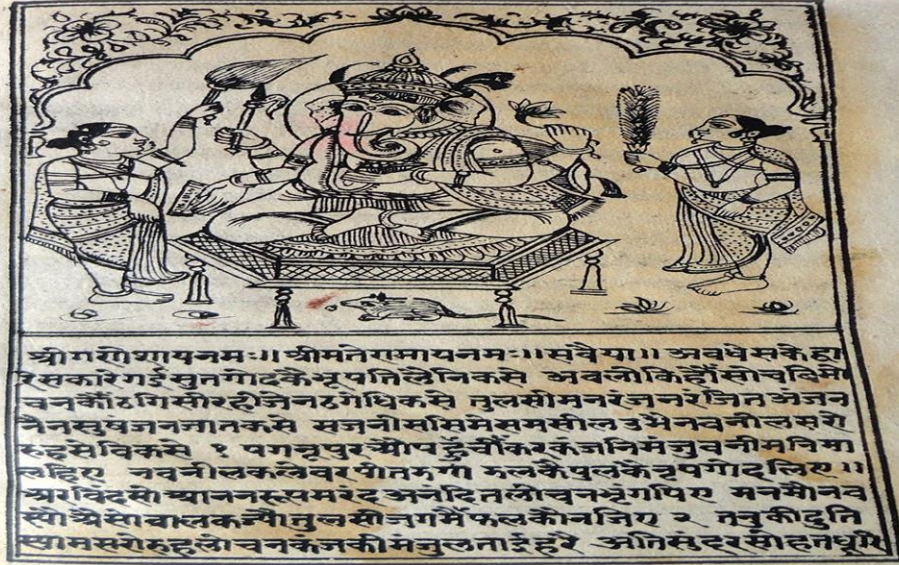 श्रीगणेशायनमः॥ श्रीमतेरामायनमः॥ सवैया॥ अवधेसकेद्वा
रेसकारेगईसुतगोदकैभूपतिलैनिकसे अवलोकिहौंसोचबिमो
चनकौंठगिसीरहीजेनठगेधिकसे तुलसीमनरंजनरंजितअंजन
नैनसुषंजनजातकसे सजनीससिमेसमसीलउभैनवनीलसरो
रुहसेविकसे १ पगनूपुरऔपहुँचीकरकंजनिमंजुबनीमनिमा
लहिए नवनीलकलेवरपीतझगा झलकैपुलकैनृपगोदलिए॥
अरविंदसोआननरूपमरंदअनंदितलोचनभृंगपिए मनमौनव
स्यौऐसोबालकज्यौतुलसीजगमैंफलकौनजिए २ तनुकीदुति
स्यामसरोरुहलोचनकंजकीमंजुलताईहरै अतिसुंदरसोहतधूरि